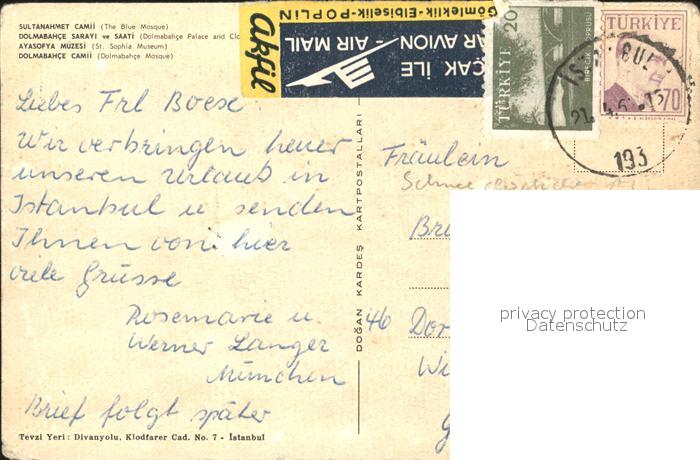 SULTANAHMET CAMİİ (The Blue Mosque)
DOLMABAHÇE SARAYI ve SAATİ (Dolmabahçe Palace and Clo
AYASOFYA MÜZESİ (St. Sophia Museum)
DOLMABAHÇE CAMİİ (Dolmabahçe Mosque)
Gömleklik-Elbiselik-POPLİN
Akfil
ÇAK İLE
AR AVION - AIR MAIL
TÜRKİYE 20
TÜRKİYE
70
21.4.6
193
Liebes Frl Boese
Wir verbringen heuer
unseren Urlaub in
Istanbul u senden
Ihnen von hier
viele Grüsse
Rosemarie u.
Werner Langer
München
Brief folgt später
Tevzi Yeri : Divanyolu, Klodfarer Cad. No. 7 - İstanbul
DOĞAN KARDEŞ KARTPOSTALLARI
Fräulein
46 Dor
Wi
privacy protection
Datenschutz